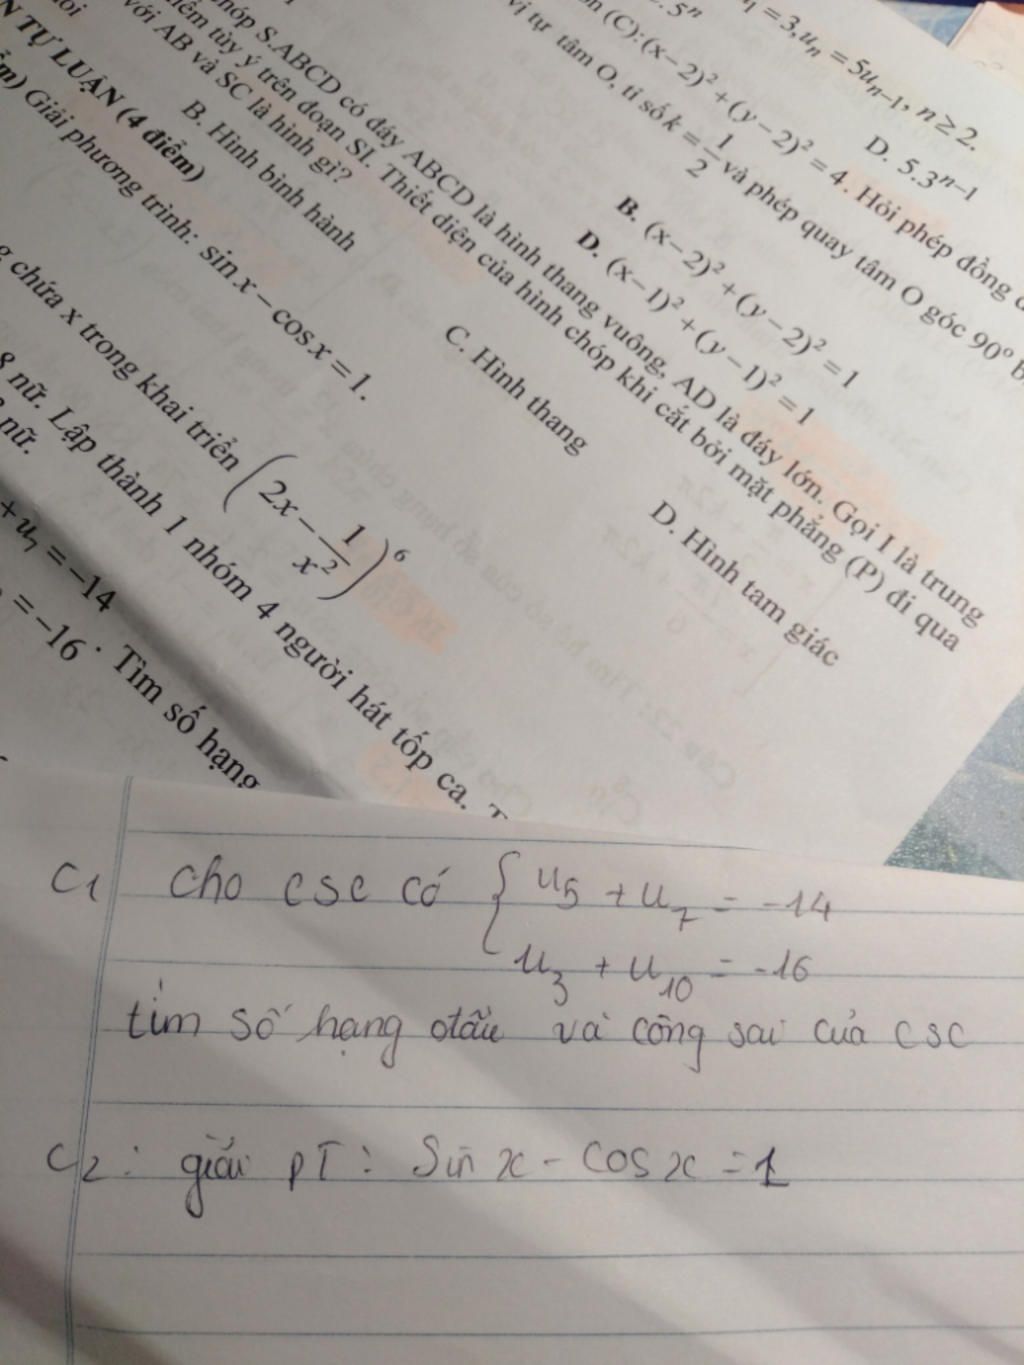 u₁ = 3, uₙ = 5uₙ₋₁, n ≥ 2.
.5ⁿ
D. 5.3ⁿ⁻¹
(C): (x − 2)² + (y − 2)² = 4. Hỏi phép đồng
vị tự tâm O, tỉ số k = 1/2 và phép quay tâm O góc 90°
B. (x − 2)² + (y − 2)² = 1
D. (x − 1)² + (y − 1)² = 1
chóp S.ABCD có đáy ABCD là hình thang vuông, AD là đáy lớn. Gọi I là trung
điểm tùy ý trên đoạn SI. Thiết diện của hình chóp khi cắt bởi mặt phẳng (P) đi qua
với AB và SC là hình gì?
B. Hình bình hành
C. Hình thang
D. Hình tam giác
N TỰ LUẬN (4 điểm)
Giải phương trình: sin x − cos x = 1.
chứa x trong khai triển (2x − 1/x²)⁶
8 nữ. Lập thành 1 nhóm 4 người hát tốp ca.
nữ.
+ u₇ = −14
= −16 . Tìm số hạng
C1 Cho CSC có { u₅ + u₇ = -14
u₃ + u₁₀ = -16
tìm số hạng đầu và công sai của CSC
C2: giải PT: Sin x - Cos x = 1